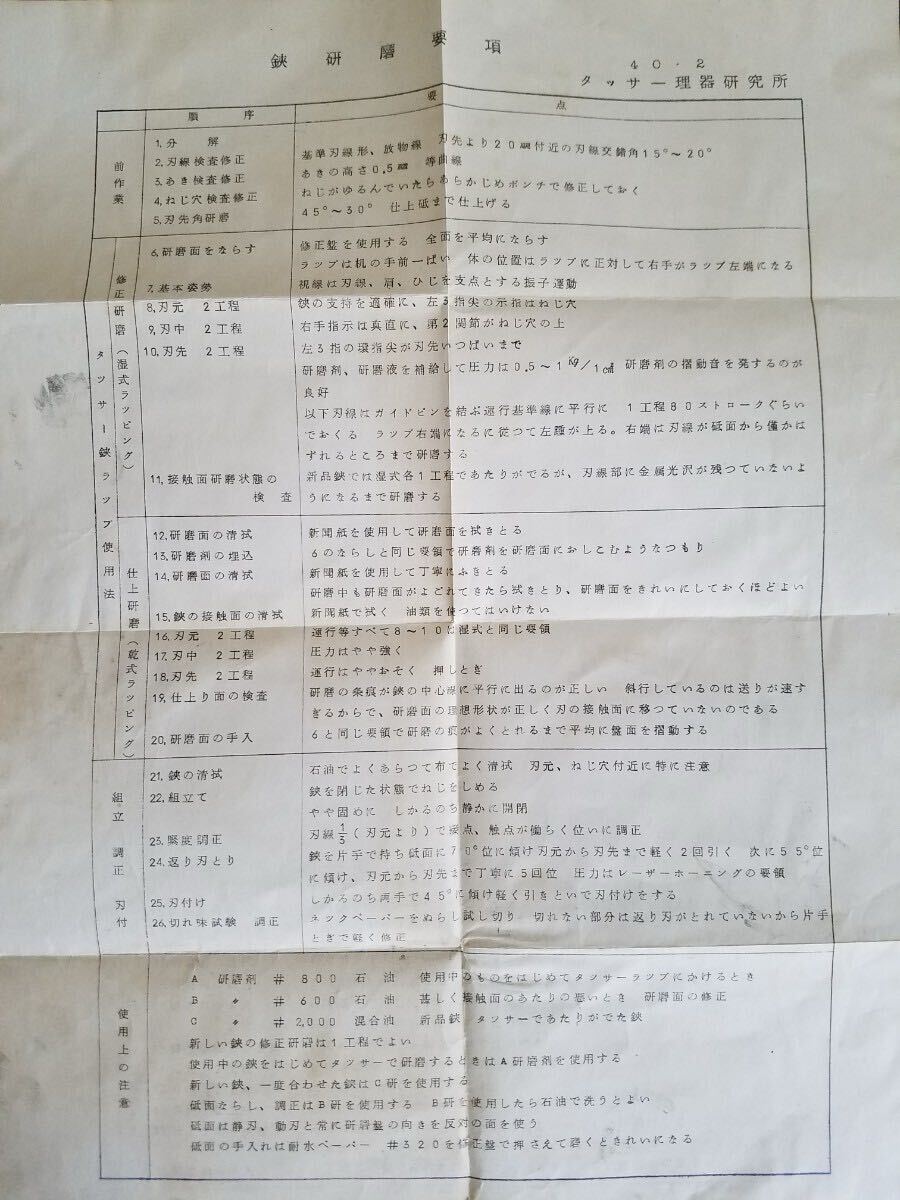 鋏研磨要項
40.2
タッサー理器研究所
順序
要点
前作業
1.分解
2.刃線検査修正
3.あき検査修正
4.ねじ穴検査修正
5.刃先角研磨
基準刃線形、放物線 刃先より20㎜付近の刃線交錯角15°～20°
あきの高さ0.5㎜ 等曲線
ねじがゆるんでいたらあらかじめポンチで修正しておく
45°～30° 仕上砥まで仕上げる
タッサー鋏ラップ使用法
修正研磨(湿式ラッピング)
6.研磨面をならす
7.基本姿勢
8.刃元 2工程
9.刃中 2工程
10.刃先 2工程
11.接触面研磨状態の
検査
修正盤を使用する 全面を平均にならす
ラップは机の手前一ぱい 体の位置はラップに正対して右手がラップ左端になる
視線は刃線、肩、ひじを支点とする振子運動
鋏の支持を適確に、左3指尖の示指はねじ穴
右手指示は真直に、第2関節がねじ穴の上
左3指の環指尖が刃先いつぱいまで
研磨剤、研磨液を補給して圧力は0.5～1㎏/1㎠ 研磨剤の摺動音を発するのが
良好
以下刃線はガイドピンを結ぶ運行基準線に平行に 1工程80ストロークぐらい
でおくる ラップ右端になるに従つて左踵が上る。右端は刃線が砥面から僅かは
ずれるところまで研磨する
新品鋏では湿式各1工程であたりがでるが、刃線部に金属光沢が残つていないよ
うになるまで研磨する
仕上研磨(乾式ラッピング)
12.研磨面の清拭
13.研磨剤の埋込
14.研磨面の清拭
15.鋏の接触面の清拭
16.刃元 2工程
17.刃中 2工程
18.刃先 2工程
19.仕上り面の検査
20.研磨面の手入
新聞紙を使用して研磨面を拭きとる
6のならしと同じ要領で研磨剤を研磨面におしこむようなつもり
新聞紙を使用して丁寧にふきとる
研磨中も研磨面がよごれてきたら拭きとり、研磨面をきれいにしておくほどよい
新聞紙で拭く 油類を使つてはいけない
運行等すべて8～10は湿式と同じ要領
圧力はやや強く
運行はややおそく 押しとぎ
研磨の条痕が鋏の中心線に平行に出るのが正しい 斜行しているのは送りが速す
ぎるからで、研磨面の理想形状が正しく刃の接触面に移つていないのである
6と同じ要領で研磨の痕がよくとれるまで平均に盤面を摺動する
組立 調正 刃付
21.鋏の清拭
22.組立て
23.緊度調正
24.返り刃とり
25.刃付け
26.切れ味試験 調正
石油でよくあらつて布でよく清拭 刃元、ねじ穴付近に特に注意
鋏を閉じた状態でねじをしめる
やや固めに しかるのち静かに開閉
刃線1/3(刃元より)で接点、触点が働らく位いに調正
鋏を片手で持ち砥面に70°位に傾け刃元から刃先まで軽く2回引く 次に55°位
に傾け、刃元から刃先まで丁寧に5回位 圧力はレーザーホーニングの要領
しかるのち両手で45°に傾け軽く引きといで刃付けをする
ネックペーパーをぬらし試し切り 切れない部分は返り刃がとれていないから片手
とぎで軽く修正
使用上の注意
A 研磨剤 #800 石油 使用中のものをはじめてタッサーラップにかけるとき
B 〃 #600 石油 甚しく接触面のあたりの悪いとき 研磨面の修正
C 〃 #2,000 混合油 新品鋏 タッサーであたりがでた鋏
新しい鋏の修正研磨は1工程でよい
使用中の鋏をはじめてタッサーで研磨するときはA研磨剤を使用する
新しい鋏、一度合わせた鋏はC研を使用する
砥面ならし、調正はB研を使用する B研を使用したら石油で洗うとよい
砥面は静刃、動刃と常に研磨盤の向きを反対の面を使う
砥面の手入れは耐水ペーパー #320を修正盤で押さえて磨くときれいになる